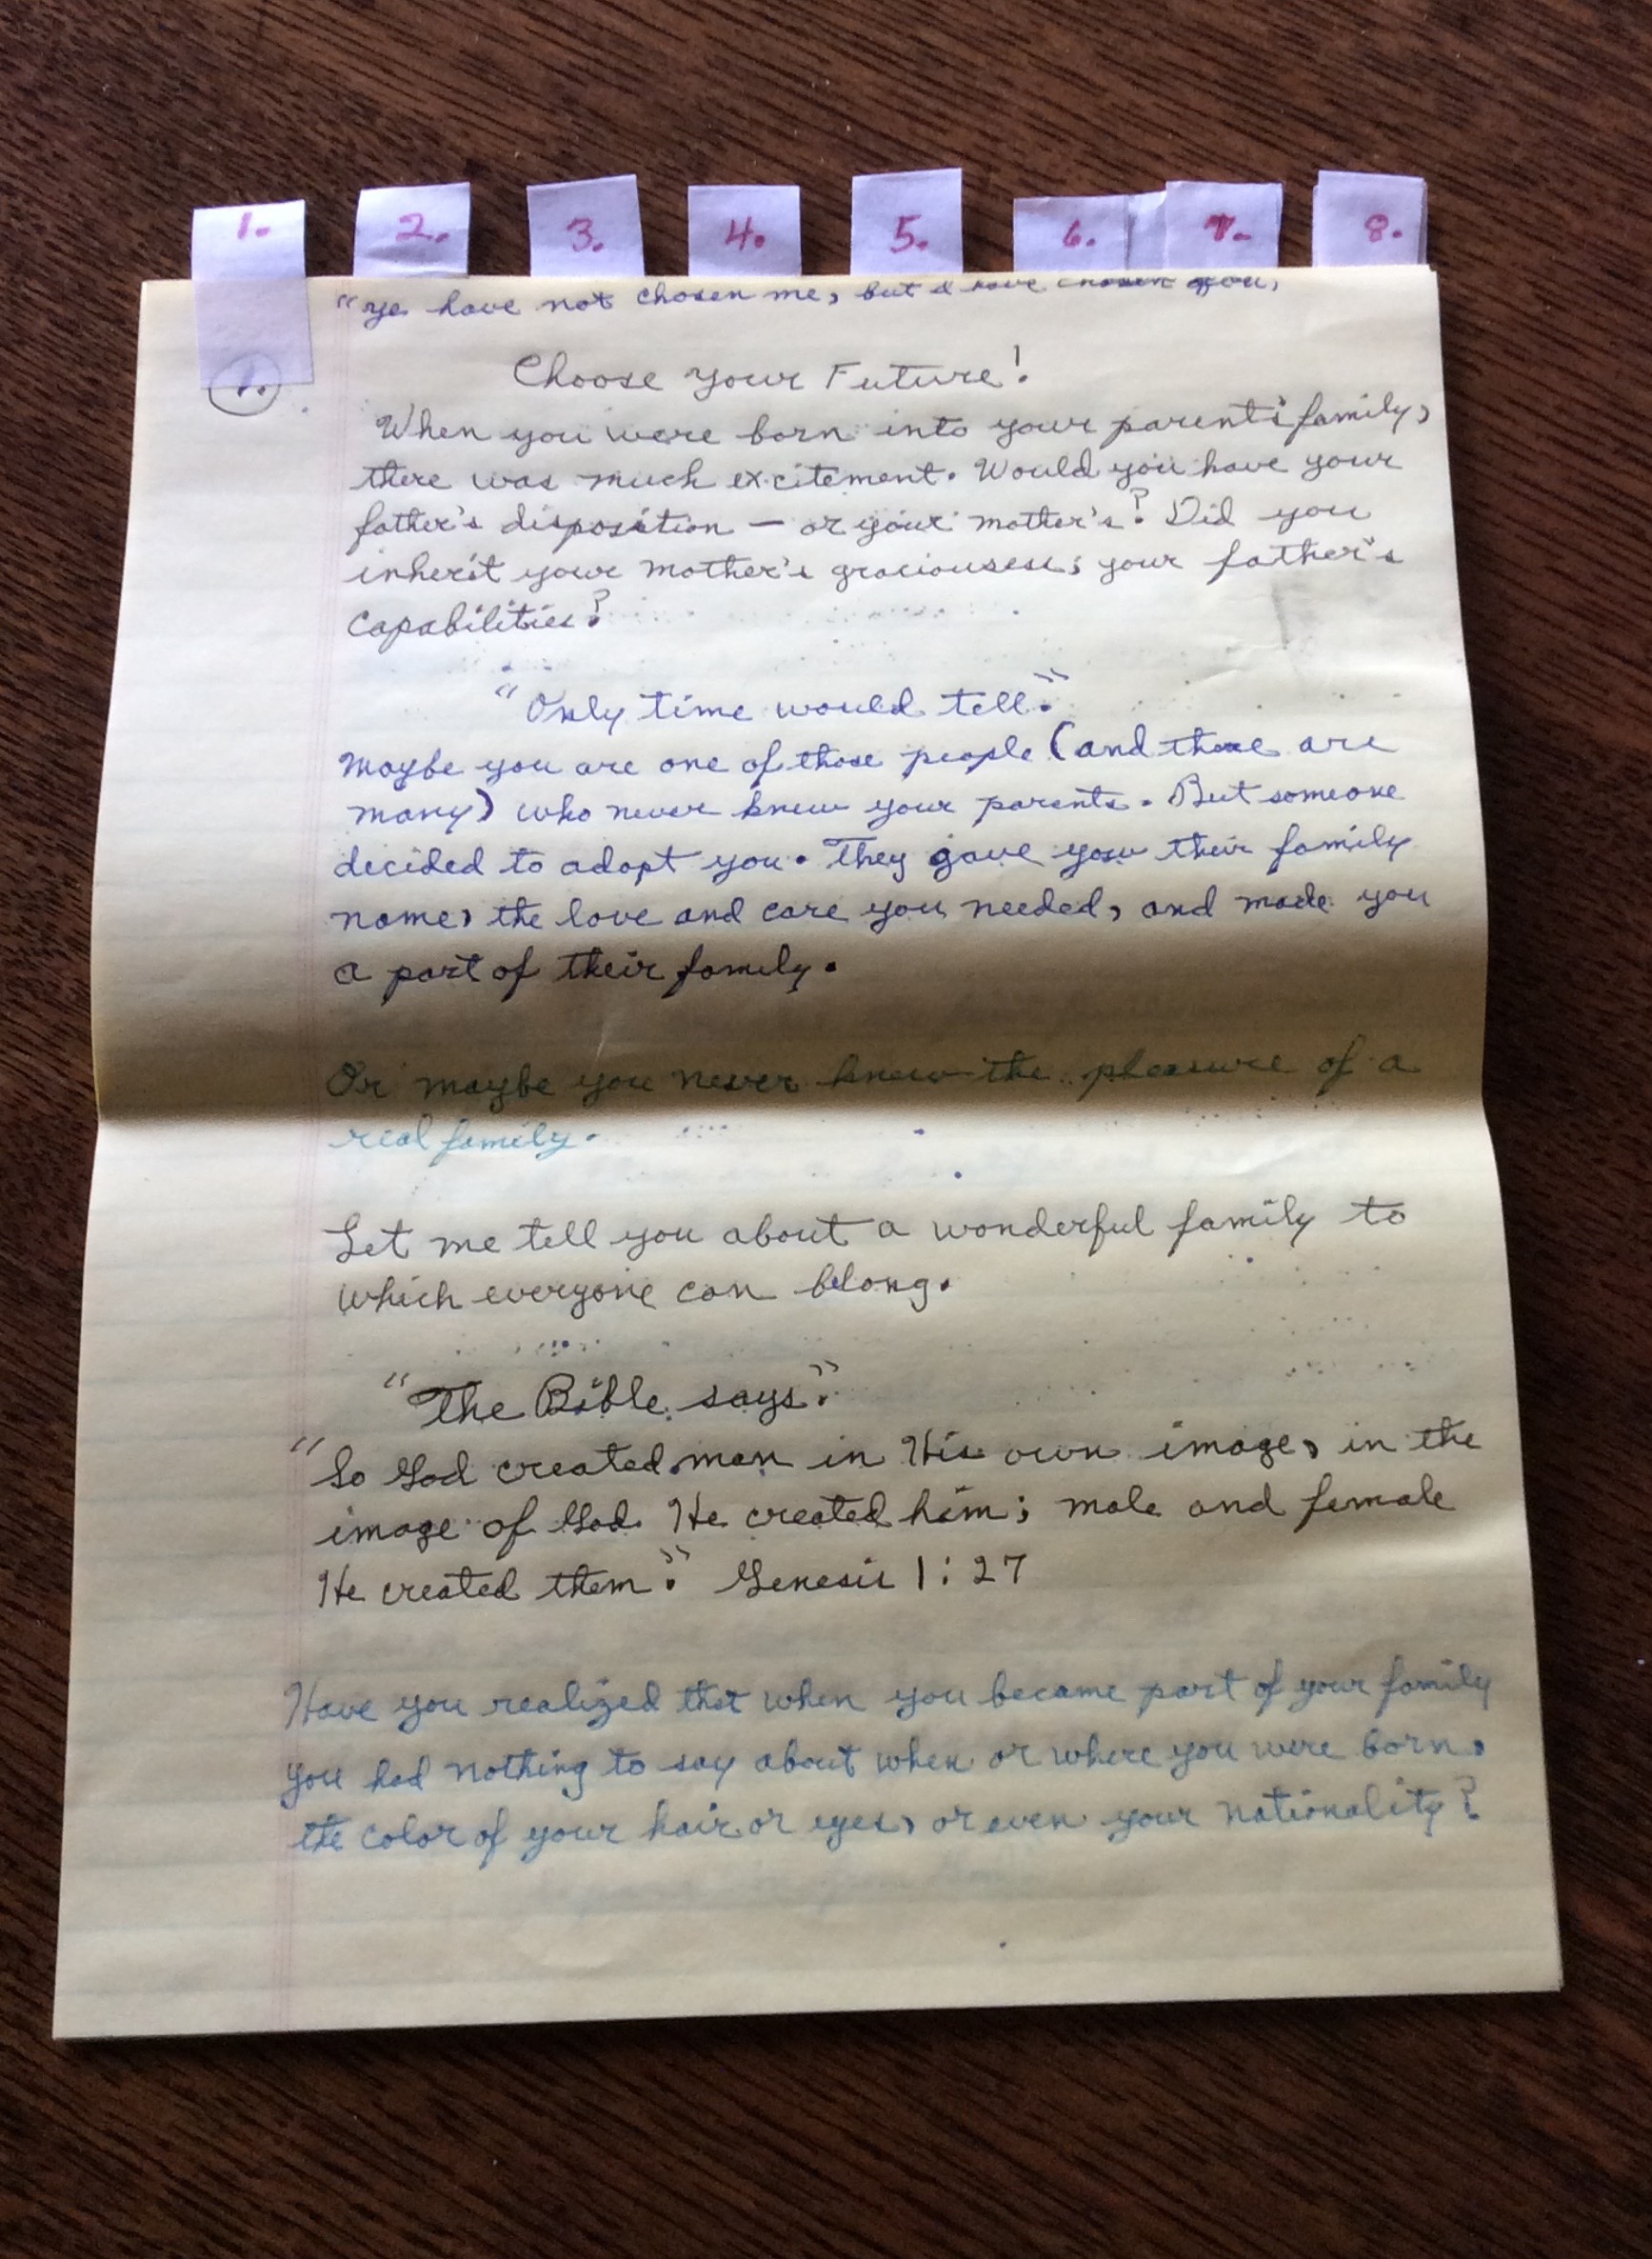 1. 2. 3. 4. 5. 6. 7. 8.
"Ye have not chosen me, but I have chosen you,
1.
Choose Your Future!
When you were born into your parents' family,
there was much excitement. Would you have your
father's disposition — or your mother's? Did you
inherit your mother's graciousess; your father's
capabilities?
"Only time would tell."
Maybe you are one of those people (and there are
many) who never knew your parents. But someone
decided to adopt you. They gave you their family
name, the love and care you needed, and made you
a part of their family.
Or maybe you never knew the pleasure of a
real family.
Let me tell you about a wonderful family to
which everyone can belong.
"The Bible says"
"So God created man in His own image, in the
image of God He created him; male and female
He created them." Genesis 1:27
Have you realized that when you became part of your family
you had nothing to say about when or where you were born,
the color of your hair or eyes, or even your nationality?